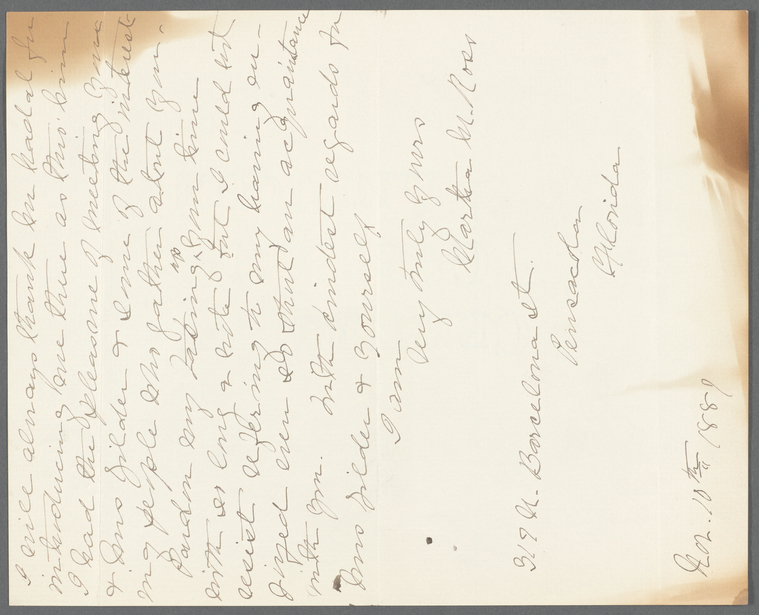 I will always thank Mr Kadal for
introducing me there as thro' him
I had the pleasure of meeting you
& Mrs Gilder & some of the interest-
ing people who gather about you.
Pardon my taking up your time
with so long a note, but I could not
resist referring to my having en-
joyed even so short an acquaintance
with you. With kindest regards for
Mrs Gilder & yourself,
I am
Very truly yours
Martha M. Ross
319 N. Barcelona st.
Pensacola
Florida
Nov. 10th 1889